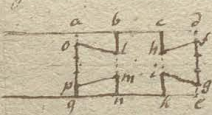 a b c d
o l h f
p m i g
q n k e